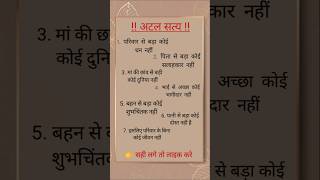 !! अटल सत्य !!
1. परिवार से बड़ा कोई
धन नहीं
2. पिता से बड़ा कोई
सलाहकार नहीं
3. मां की छांव से बड़ी
कोई दुनिया नहीं
4. भाई से अच्छा कोई
भागीदार नहीं
5. बहन से बड़ा कोई
शुभचिंतक नहीं
6. पत्नी से बड़ा कोई
दोस्त नहीं है
7. इसलिए परिवार के बिना
कोई जीवन नहीं
👉 सही लगे तो लाइक करे
3. मां की
कोई
5. बहन से
शुभचिंतक
अच्छा
नहीं
बड़ा
नहीं है